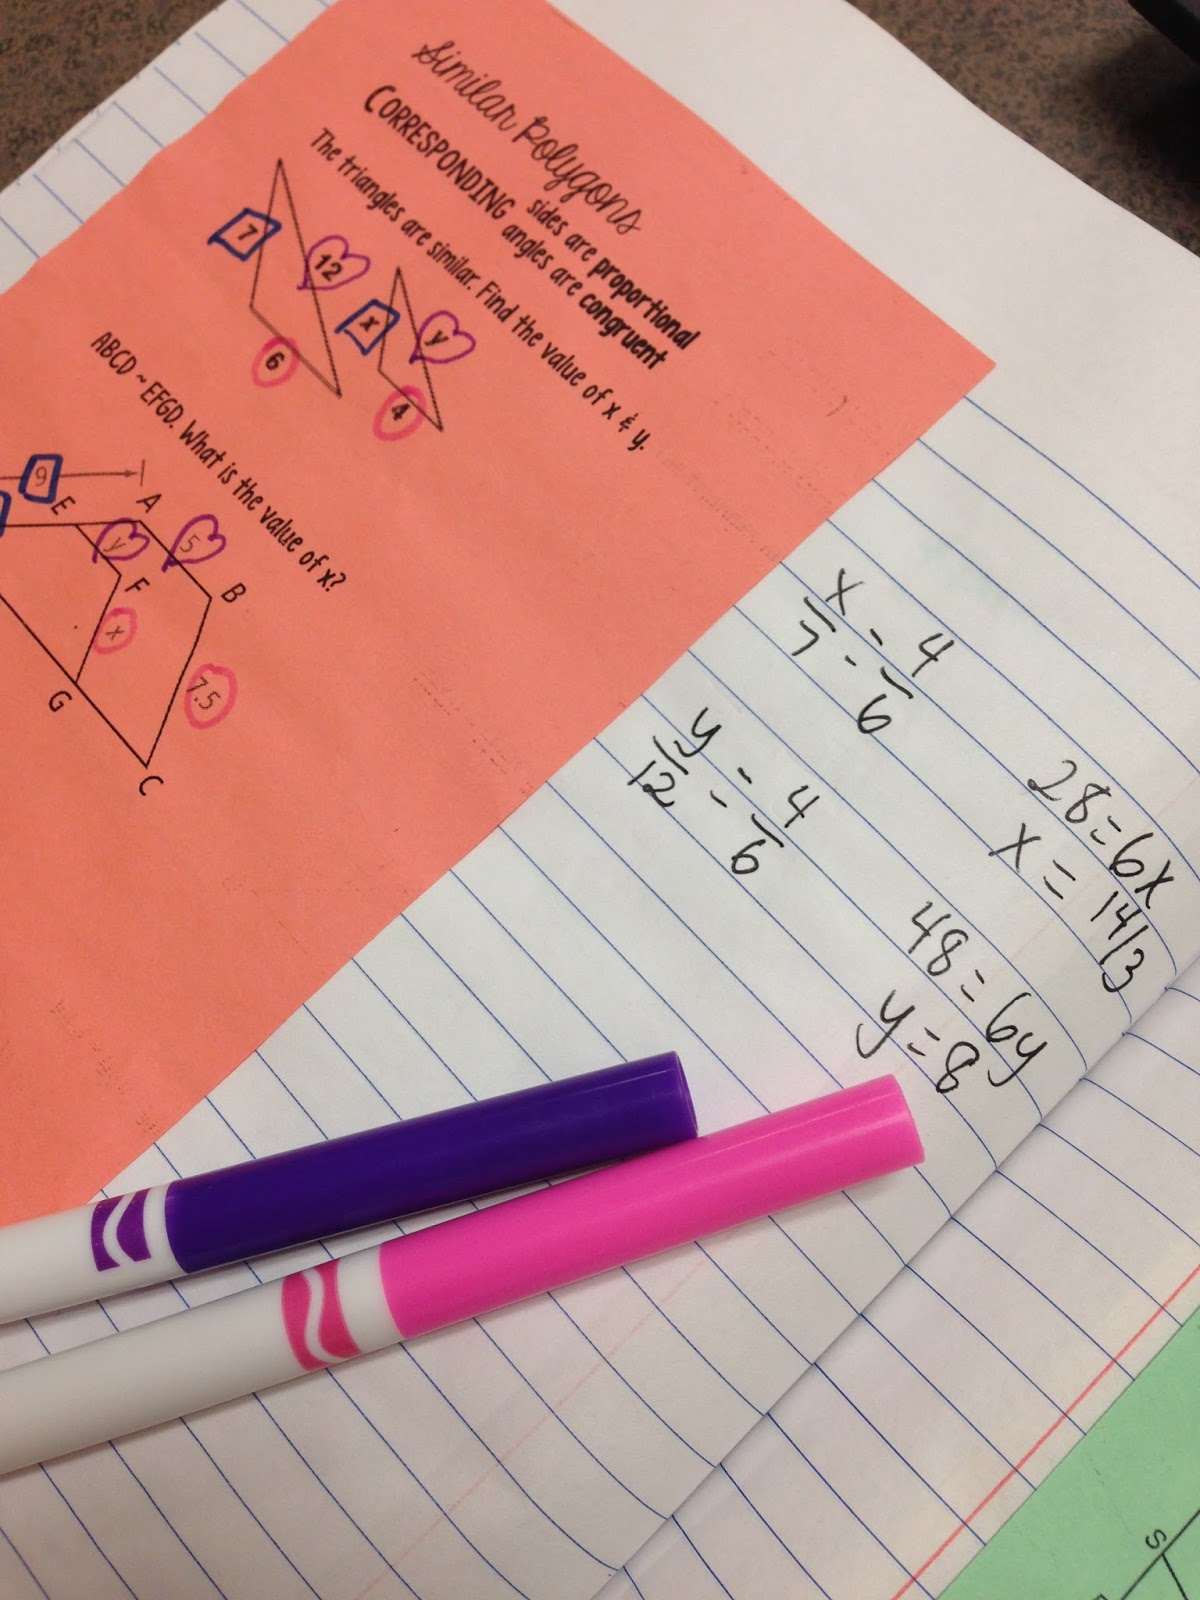 Similar Polygons
CORRESPONDING sides are proportional
angles are congruent
The triangles are similar. Find the value of x & y.
7
12
6
x
y
4
ABCD ~ EFGD. What is the value of x?
9
E
A
y
5
F
B
x
7.5
G
C
x/7 = 4/6
28 = 6x
x = 14/3
y/12 = 4/6
48 = 6y
y = 8
S